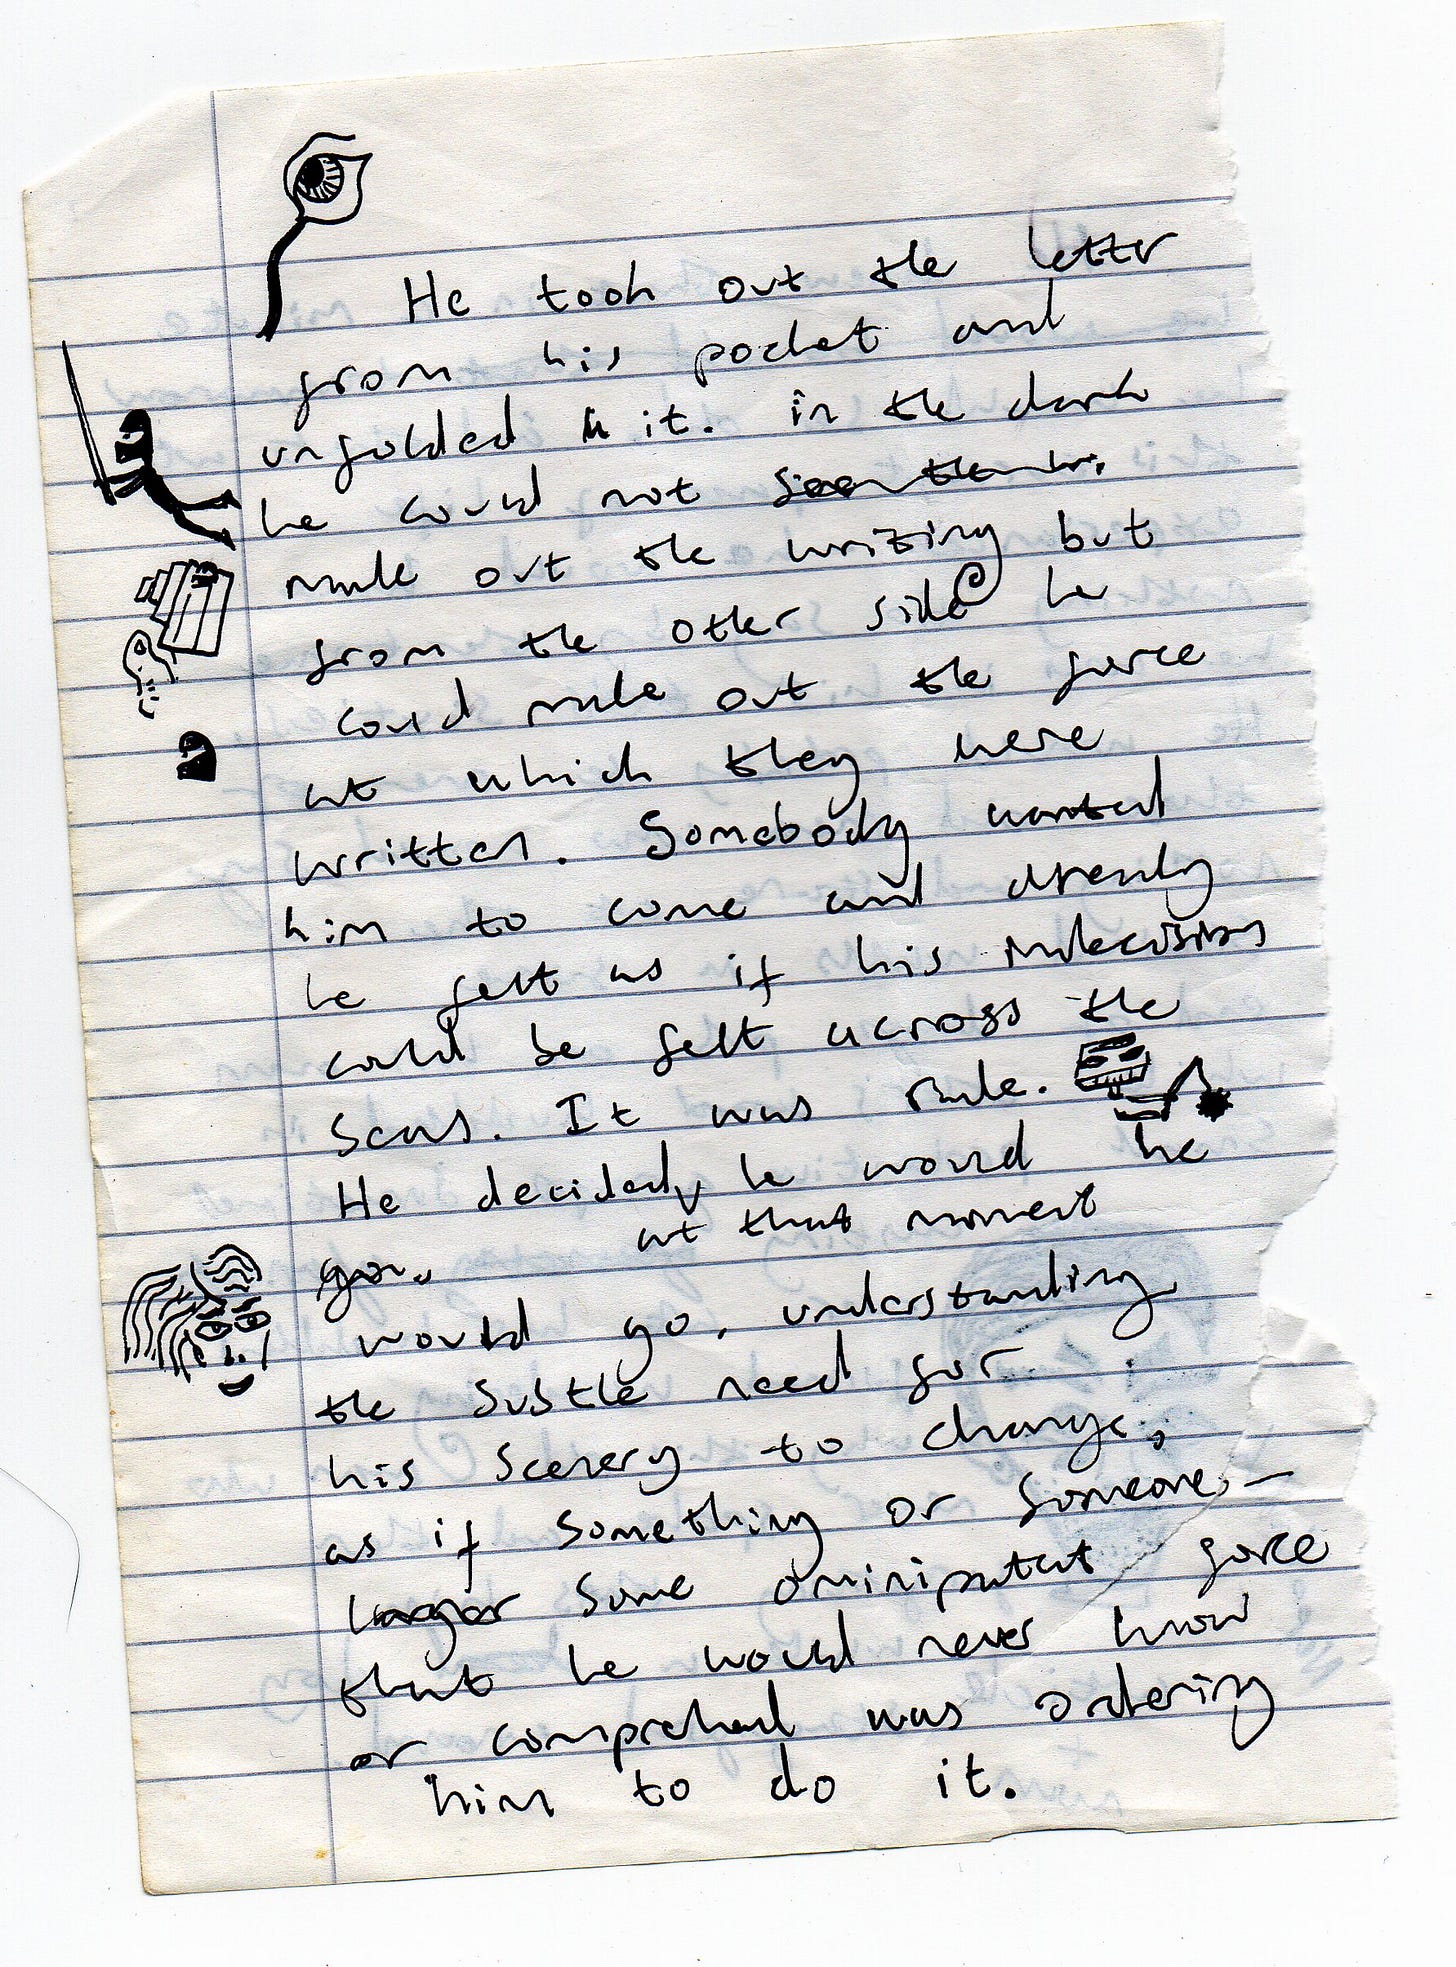 He took out the letter
from his pocket and
unfolded it. in the dark
he could not see the
make out the writing but
from the other side he
could make out the force
at which they were
written. Somebody wanted
him to come and already
he felt as if his indecision
could be felt across the
seas. It was rude.
He decided, he would he
at that moment
go.
would go, understanding
the subtle need for
his scenery to change,
as if something or someone -
larger some ominipotent force
that he would never know
or comprehend was ordering
him to do it.